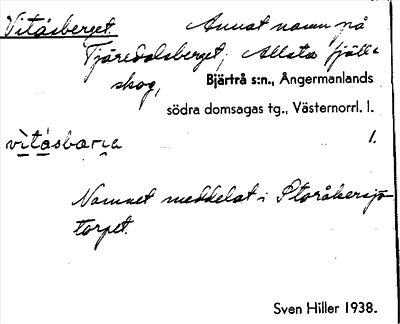 Vitåsberget. Annat namn på
Tjäredalsberget, Allsta fjäll-
skog,
Bjärtrå s:n., Ångermanlands
södra domsagas tg., Västernorrl. l.
vìtásbarja 1.
Namnet meddelat i Storåkersjö-
torpet.
Sven Hiller 1938.